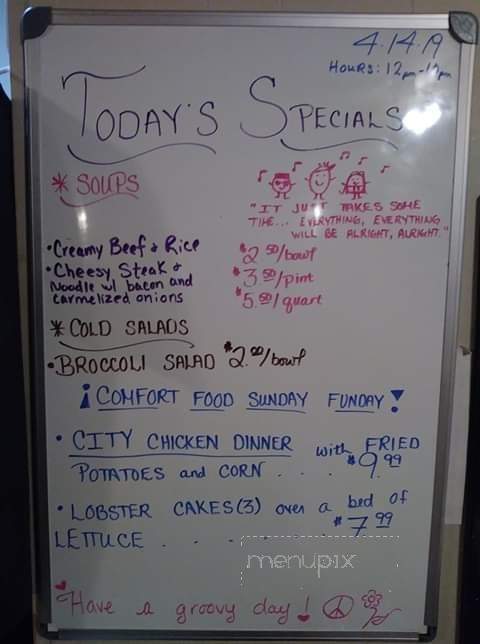 4.14.19
HOURS: 12pm-12pm
TODAY'S SPECIALS
* SOUPS
"IT JUST TAKES SOME
TIME... EVERYTHING, EVERYTHING
WILL BE ALRIGHT, ALRIGHT."
• Creamy Beef & Rice
$2.50/bowl
• Cheesy Steak &
Noodle w/ bacon and
carmelized onions
$3.50/pint
$5.50/quart
* COLD SALADS
• BROCCOLI SALAD $2.00/bowl
¡COMFORT FOOD SUNDAY FUNDAY!
• CITY CHICKEN DINNER with FRIED
POTATOES and CORN . . . . $9.99
• LOBSTER CAKES(3) over a bed of
LETTUCE . . . . . . . $7.99
menupix
Have a groovy day!